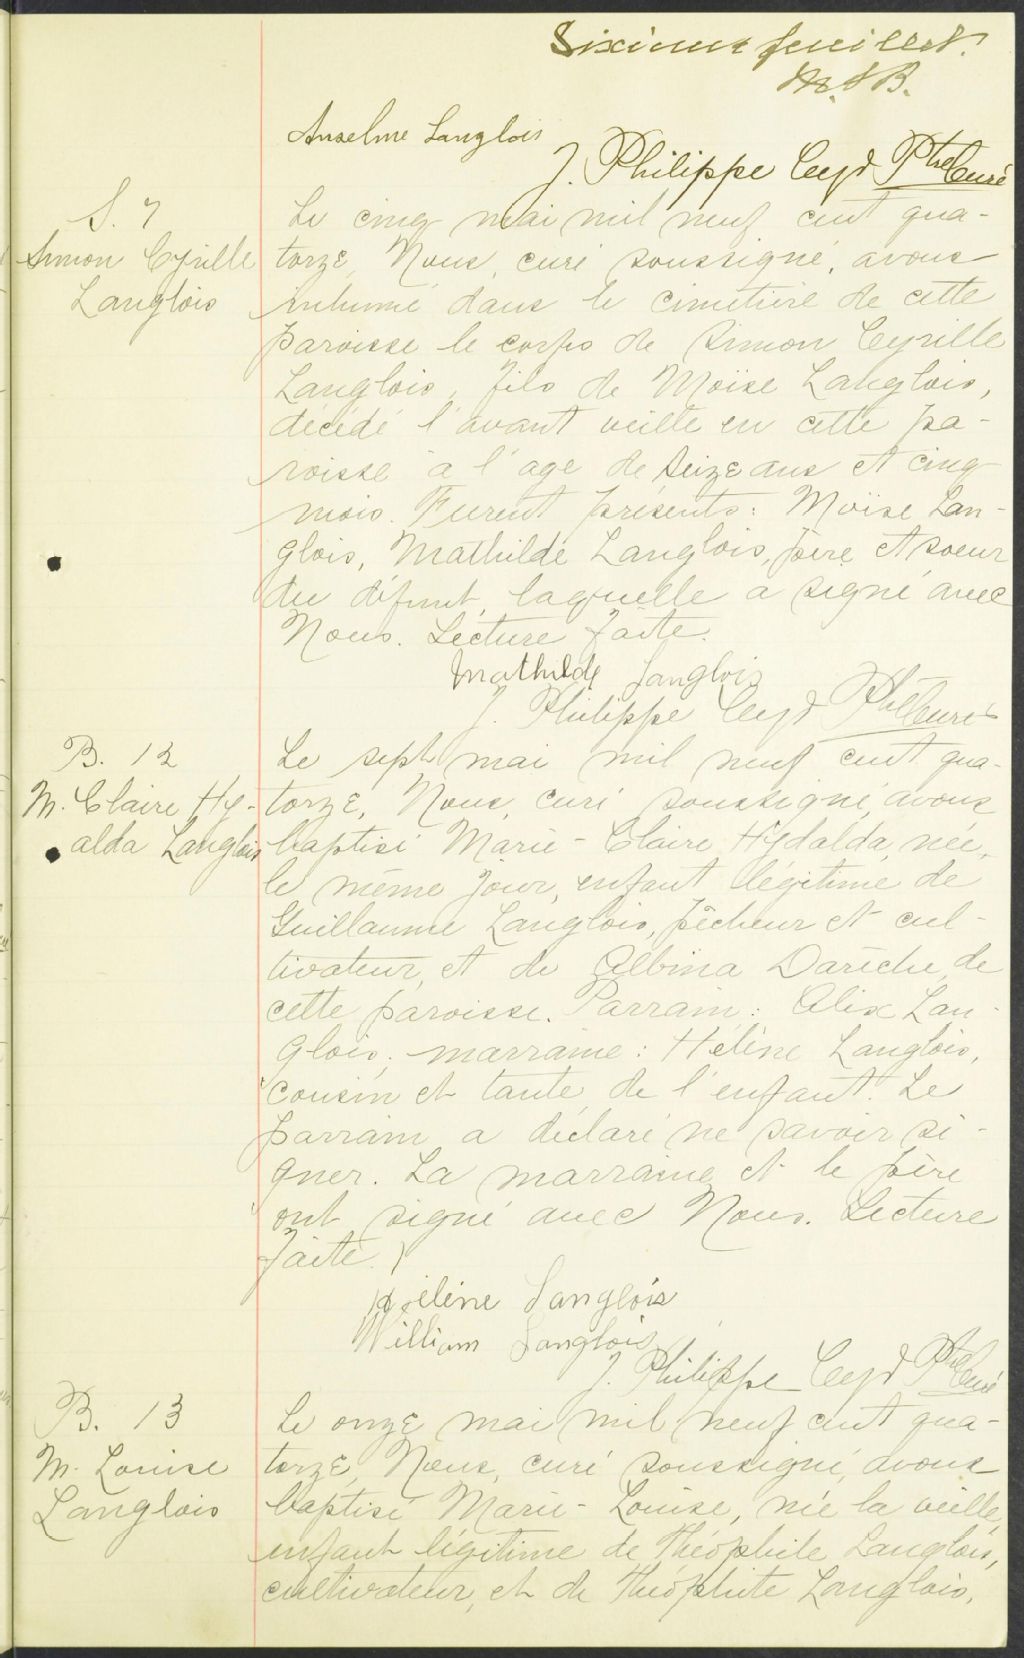 Sixième feuillet.
Anselme Langlois
J. Philippe Cyr Ptre Curé
S. 7
Simon Cyrille
Langlois
Le cinq mai mil neuf cent qua-
torze, Nous, curé soussigné, avons
inhumé dans le cimetière de cette
paroisse le corps de Simon Cyrille
Langlois, fils de Moïse Langlois,
décédé l'avant veille en cette pa-
roisse à l'age de seize ans et cinq
mois. Furent présents: Moïse Lan-
glois, Mathilde Langlois, père et soeur
du défunt, laquelle a signé avec
Nous. Lecture faite.
Mathilde Langlois
J. Philippe Cyr Ptre Curé
B. 12
M. Claire Hy-
alda Langlois
Le sept mai mil neuf cent qua-
torze, Nous, curé soussigné, avons
baptisé Marie-Claire Hydalda, née,
le même jour, enfant légitime de
Guillaume Langlois, pêcheur et cul-
tivateur, et de Albina Darêche, de
cette paroisse. Parrain: Alix Lan-
glois; marraine: Hélène Langlois,
cousin et tante de l'enfant. Le
parrain a déclaré ne savoir si-
gner. La marraine et le père
ont signé avec Nous. Lecture
faite.
Hélène Langlois
William Langlois
J. Philippe Cyr Ptre Curé
B. 13
M. Louise
Langlois
Le onze mai mil neuf cent qua-
torze, Nous, curé soussigné, avons
baptisé Marie-Louise, née la veille,
enfant légitime de Théophile Langlois,
cultivateur, et de Théophite Langlois,